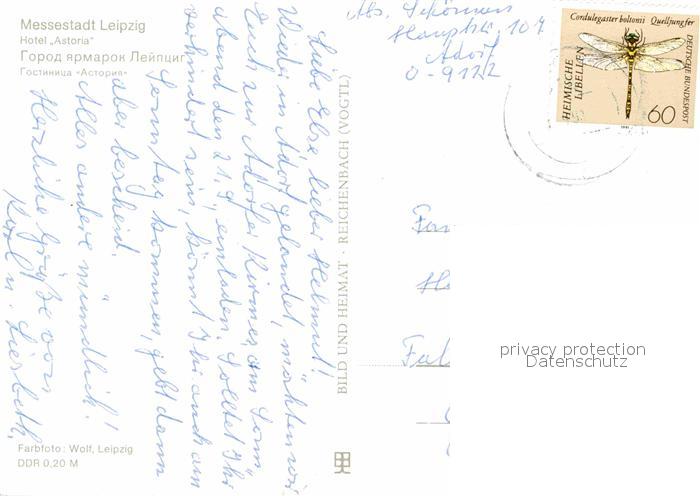 Messestadt Leipzig
Hotel „Astoria"
Город ярмарок Лейпциг
Гостиница «Астория»
Liebe Else, lieber Helmut!
Wieder in Adorf gelandet, möchten wir
Euch zur Adorfer Kirmes am Sonn
abend den 21.9. einladen. Solltet Ihr
verhindert sein, könnt Ihr auch am
Sonntag kommen, gebt dann
aber bescheid.
Alles andere mündlich!
Herzliche Grüße von
Karl u. Liesbeth.
Farbfoto: Wolf, Leipzig
DDR 0,20 M
BILD UND HEIMAT · REICHENBACH (VOGTL)
Abs. 
Hauptstr. 104
Adorf
O-9122
Cordulegaster boltoni Quelljungfer
HEIMISCHE
LIBELLEN
DEUTSCHE BUNDESPOST
60
1991
Fam
privacy protection
Datenschutz